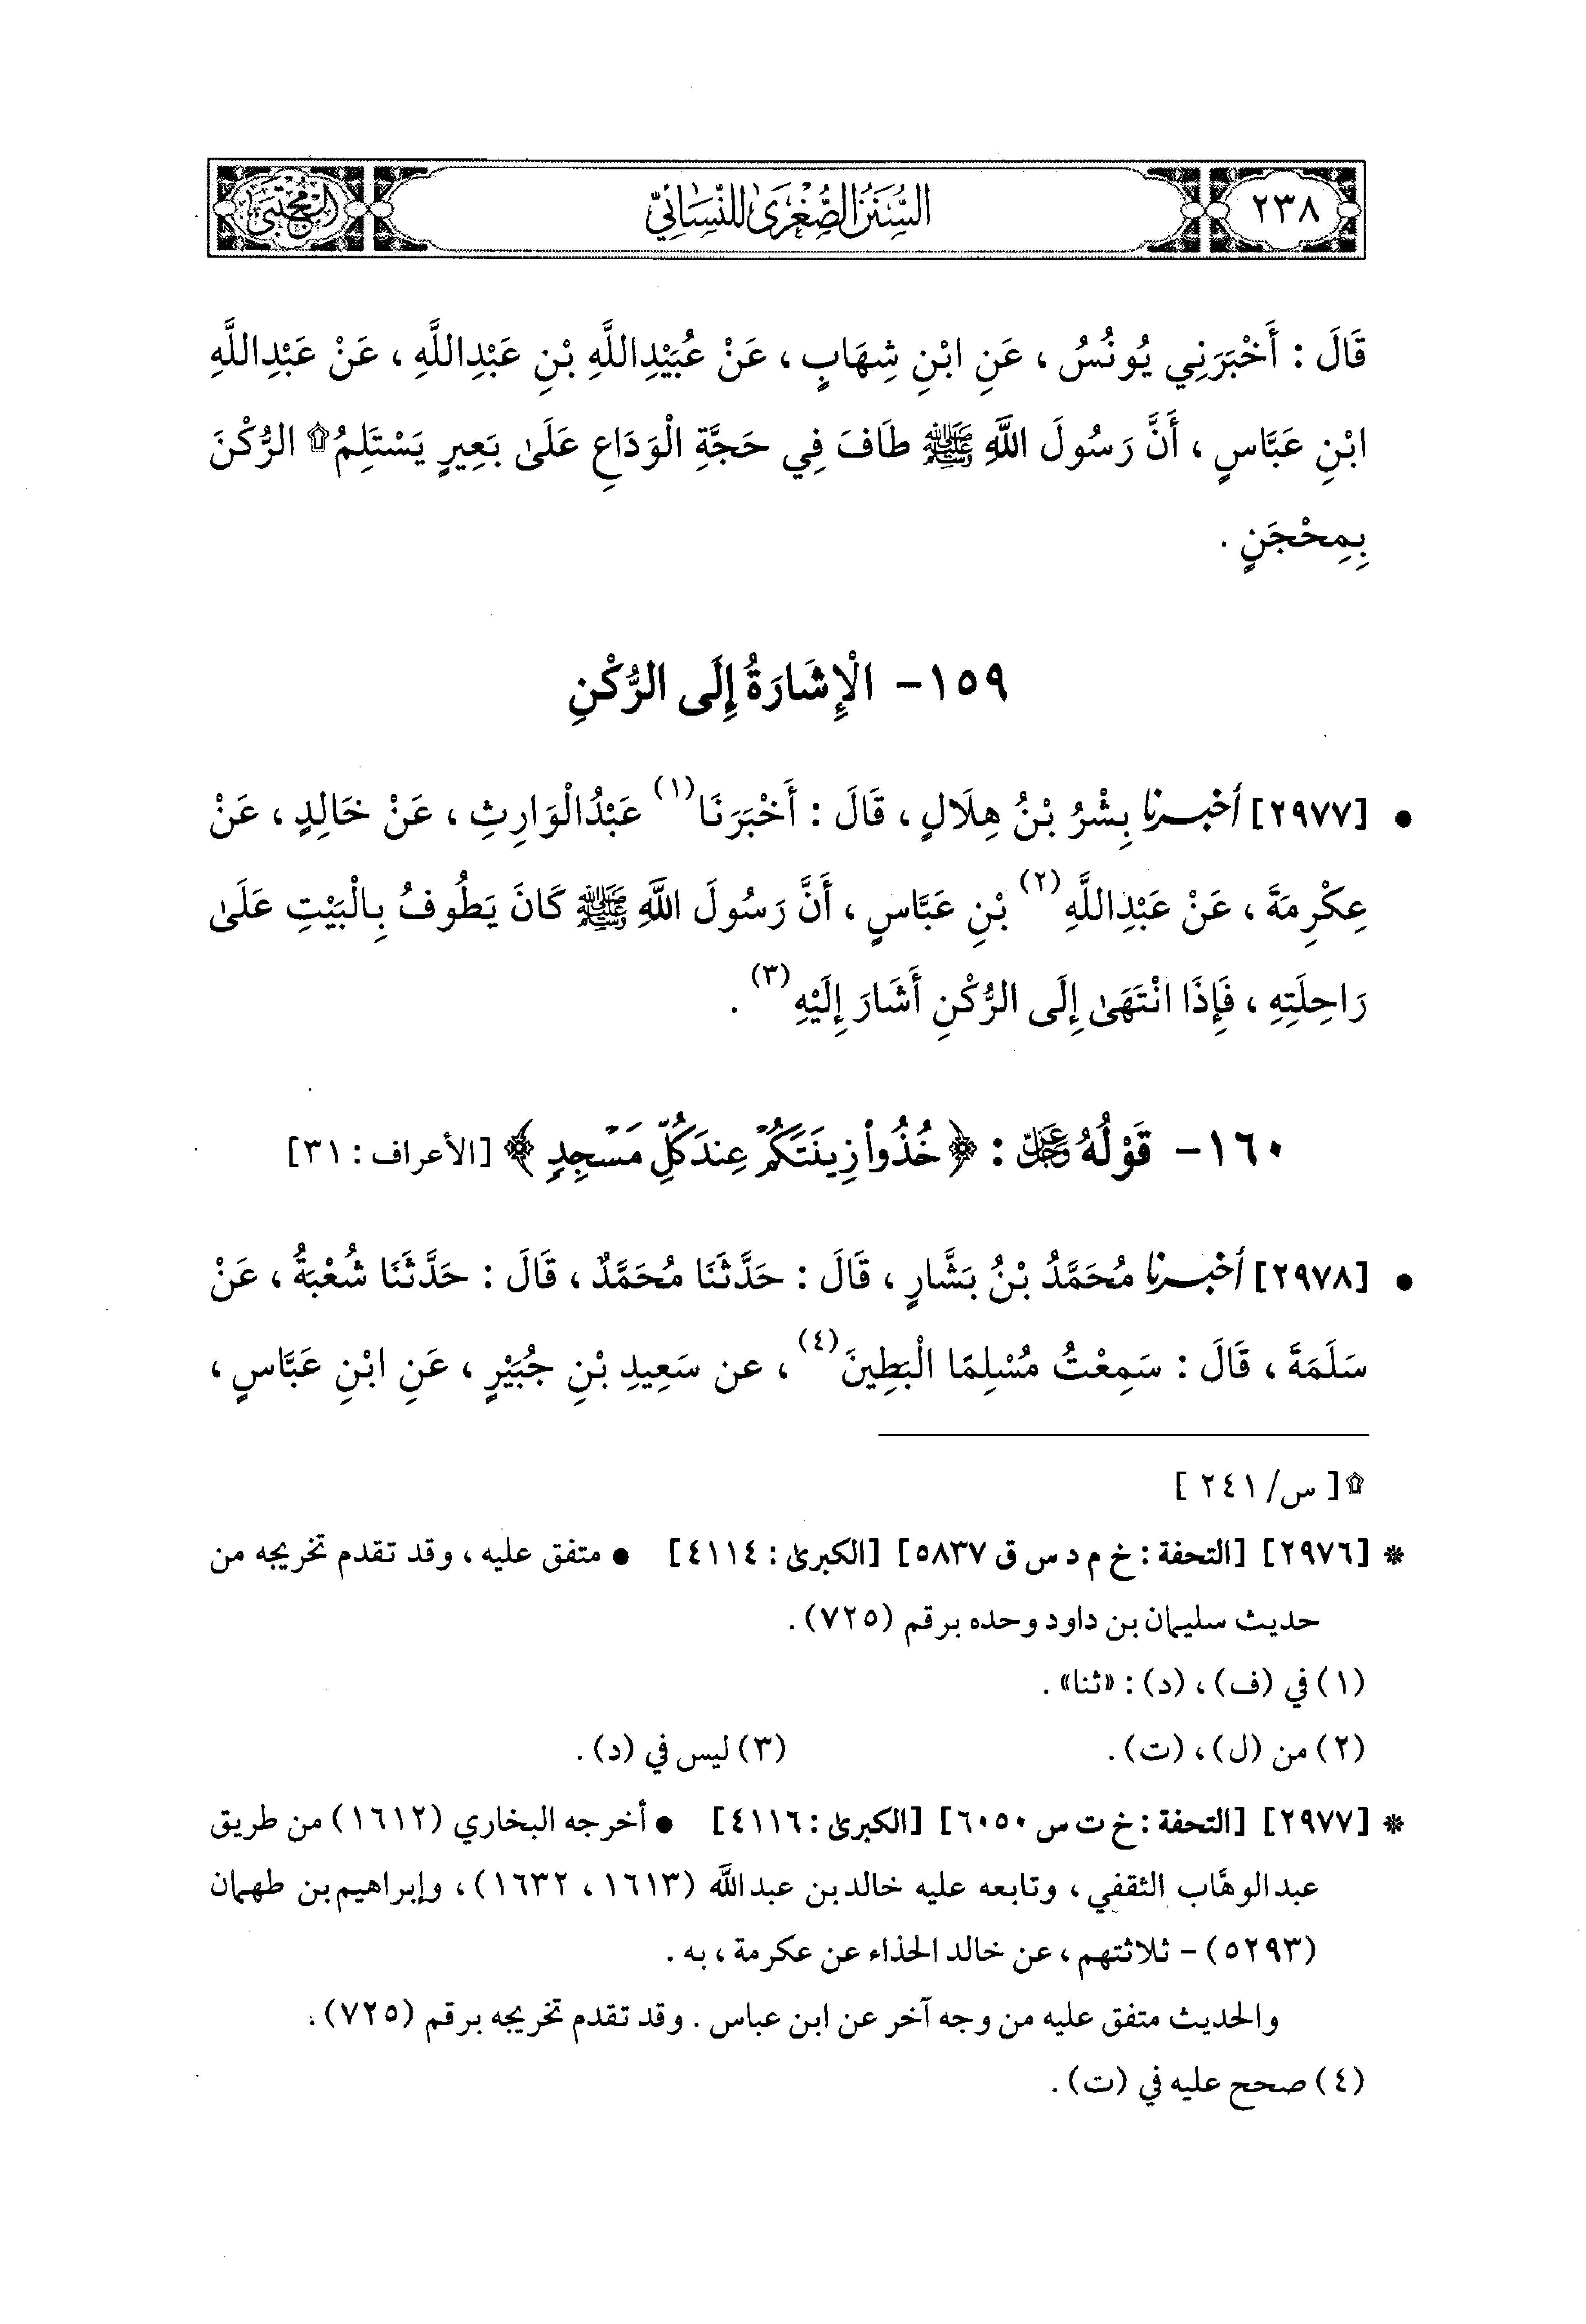 ٢٣٨
السُّنَنُ الصُّغْرَىٰ لِلنَّسَائِيِّ
المجتبى
قَالَ : أَخْبَرَنِي يُونُسُ ، عَنِ ابْنِ شِهَابٍ ، عَنْ عُبَيْدِاللَّهِ بْنِ عَبْدِاللَّهِ ، عَنْ عَبْدِاللَّهِ
ابْنِ عَبَّاسٍ ، أَنَّ رَسُولَ اللَّهِ ﷺ طَافَ فِي حَجَّةِ الْوَدَاعِ عَلَىٰ بَعِيرٍ يَسْتَلِمُ۩ الرُّكْنَ
بِمِحْجَنٍ .
١٥٩- الْإِشَارَةُ إِلَى الرُّكْنِ
• [٢٩٧٧] أَخْبَرَنَا بِشْرُ بْنُ هِلَالٍ ، قَالَ : أَخْبَرَنَا(١) عَبْدُالْوَارِثِ ، عَنْ خَالِدٍ ، عَنْ
عِكْرِمَةَ ، عَنْ عَبْدِاللَّهِ(٢) بْنِ عَبَّاسٍ ، أَنَّ رَسُولَ اللَّهِ ﷺ كَانَ يَطُوفُ بِالْبَيْتِ عَلَىٰ
رَاحِلَتِهِ ، فَإِذَا انْتَهَىٰ إِلَى الرُّكْنِ أَشَارَ إِلَيْهِ(٣) .
١٦٠- قَوْلُهُ عَزَّ وَجَلَّ : ﴿خُذُوا۟ زِينَتَكُمْ عِندَ كُلِّ مَسْجِدٍ﴾ [الأعراف : ٣١]
• [٢٩٧٨] أَخْبَرَنَا مُحَمَّدُ بْنُ بَشَّارٍ ، قَالَ : حَدَّثَنَا مُحَمَّدٌ ، قَالَ : حَدَّثَنَا شُعْبَةُ ، عَنْ
سَلَمَةَ ، قَالَ : سَمِعْتُ مُسْلِمًا الْبَطِينَ(٤) ، عن سَعِيدِ بْنِ جُبَيْرٍ ، عَنِ ابْنِ عَبَّاسٍ ،
۩ [ س/ ٢٤١ ]
* [٢٩٧٦] [التحفة : خ م د س ق ٥٨٣٧] [الكبرىٰ : ٤١١٤] • متفق عليه ، وقد تقدم تخريجه من
حديث سليمان بن داود وحده برقم (٧٢٥).
(١) في (ف) ، (د) : «ثنا» .
(٢) من (ل) ، (ت) . (٣) ليس في (د) .
* [٢٩٧٧] [التحفة : خ ت س ٦٠٥٠] [الكبرىٰ : ٤١١٦] • أخرجه البخاري (١٦١٢) من طريق
عبدالوهَّاب الثقفي ، وتابعه عليه خالد بن عبداللَّه (١٦١٣ ، ١٦٣٢) ، وإبراهيم بن طهمان
(٥٢٩٣) - ثلاثتهم ، عن خالد الحذاء عن عكرمة ، به .
والحديث متفق عليه من وجه آخر عن ابن عباس . وقد تقدم تخريجه برقم (٧٢٥) .
(٤) صحح عليه في (ت) .